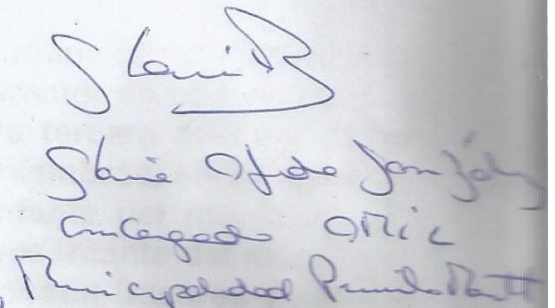 Gloria
Gloria Ojeda González
Encargada OMIC
Municipalidad Puerto Montt